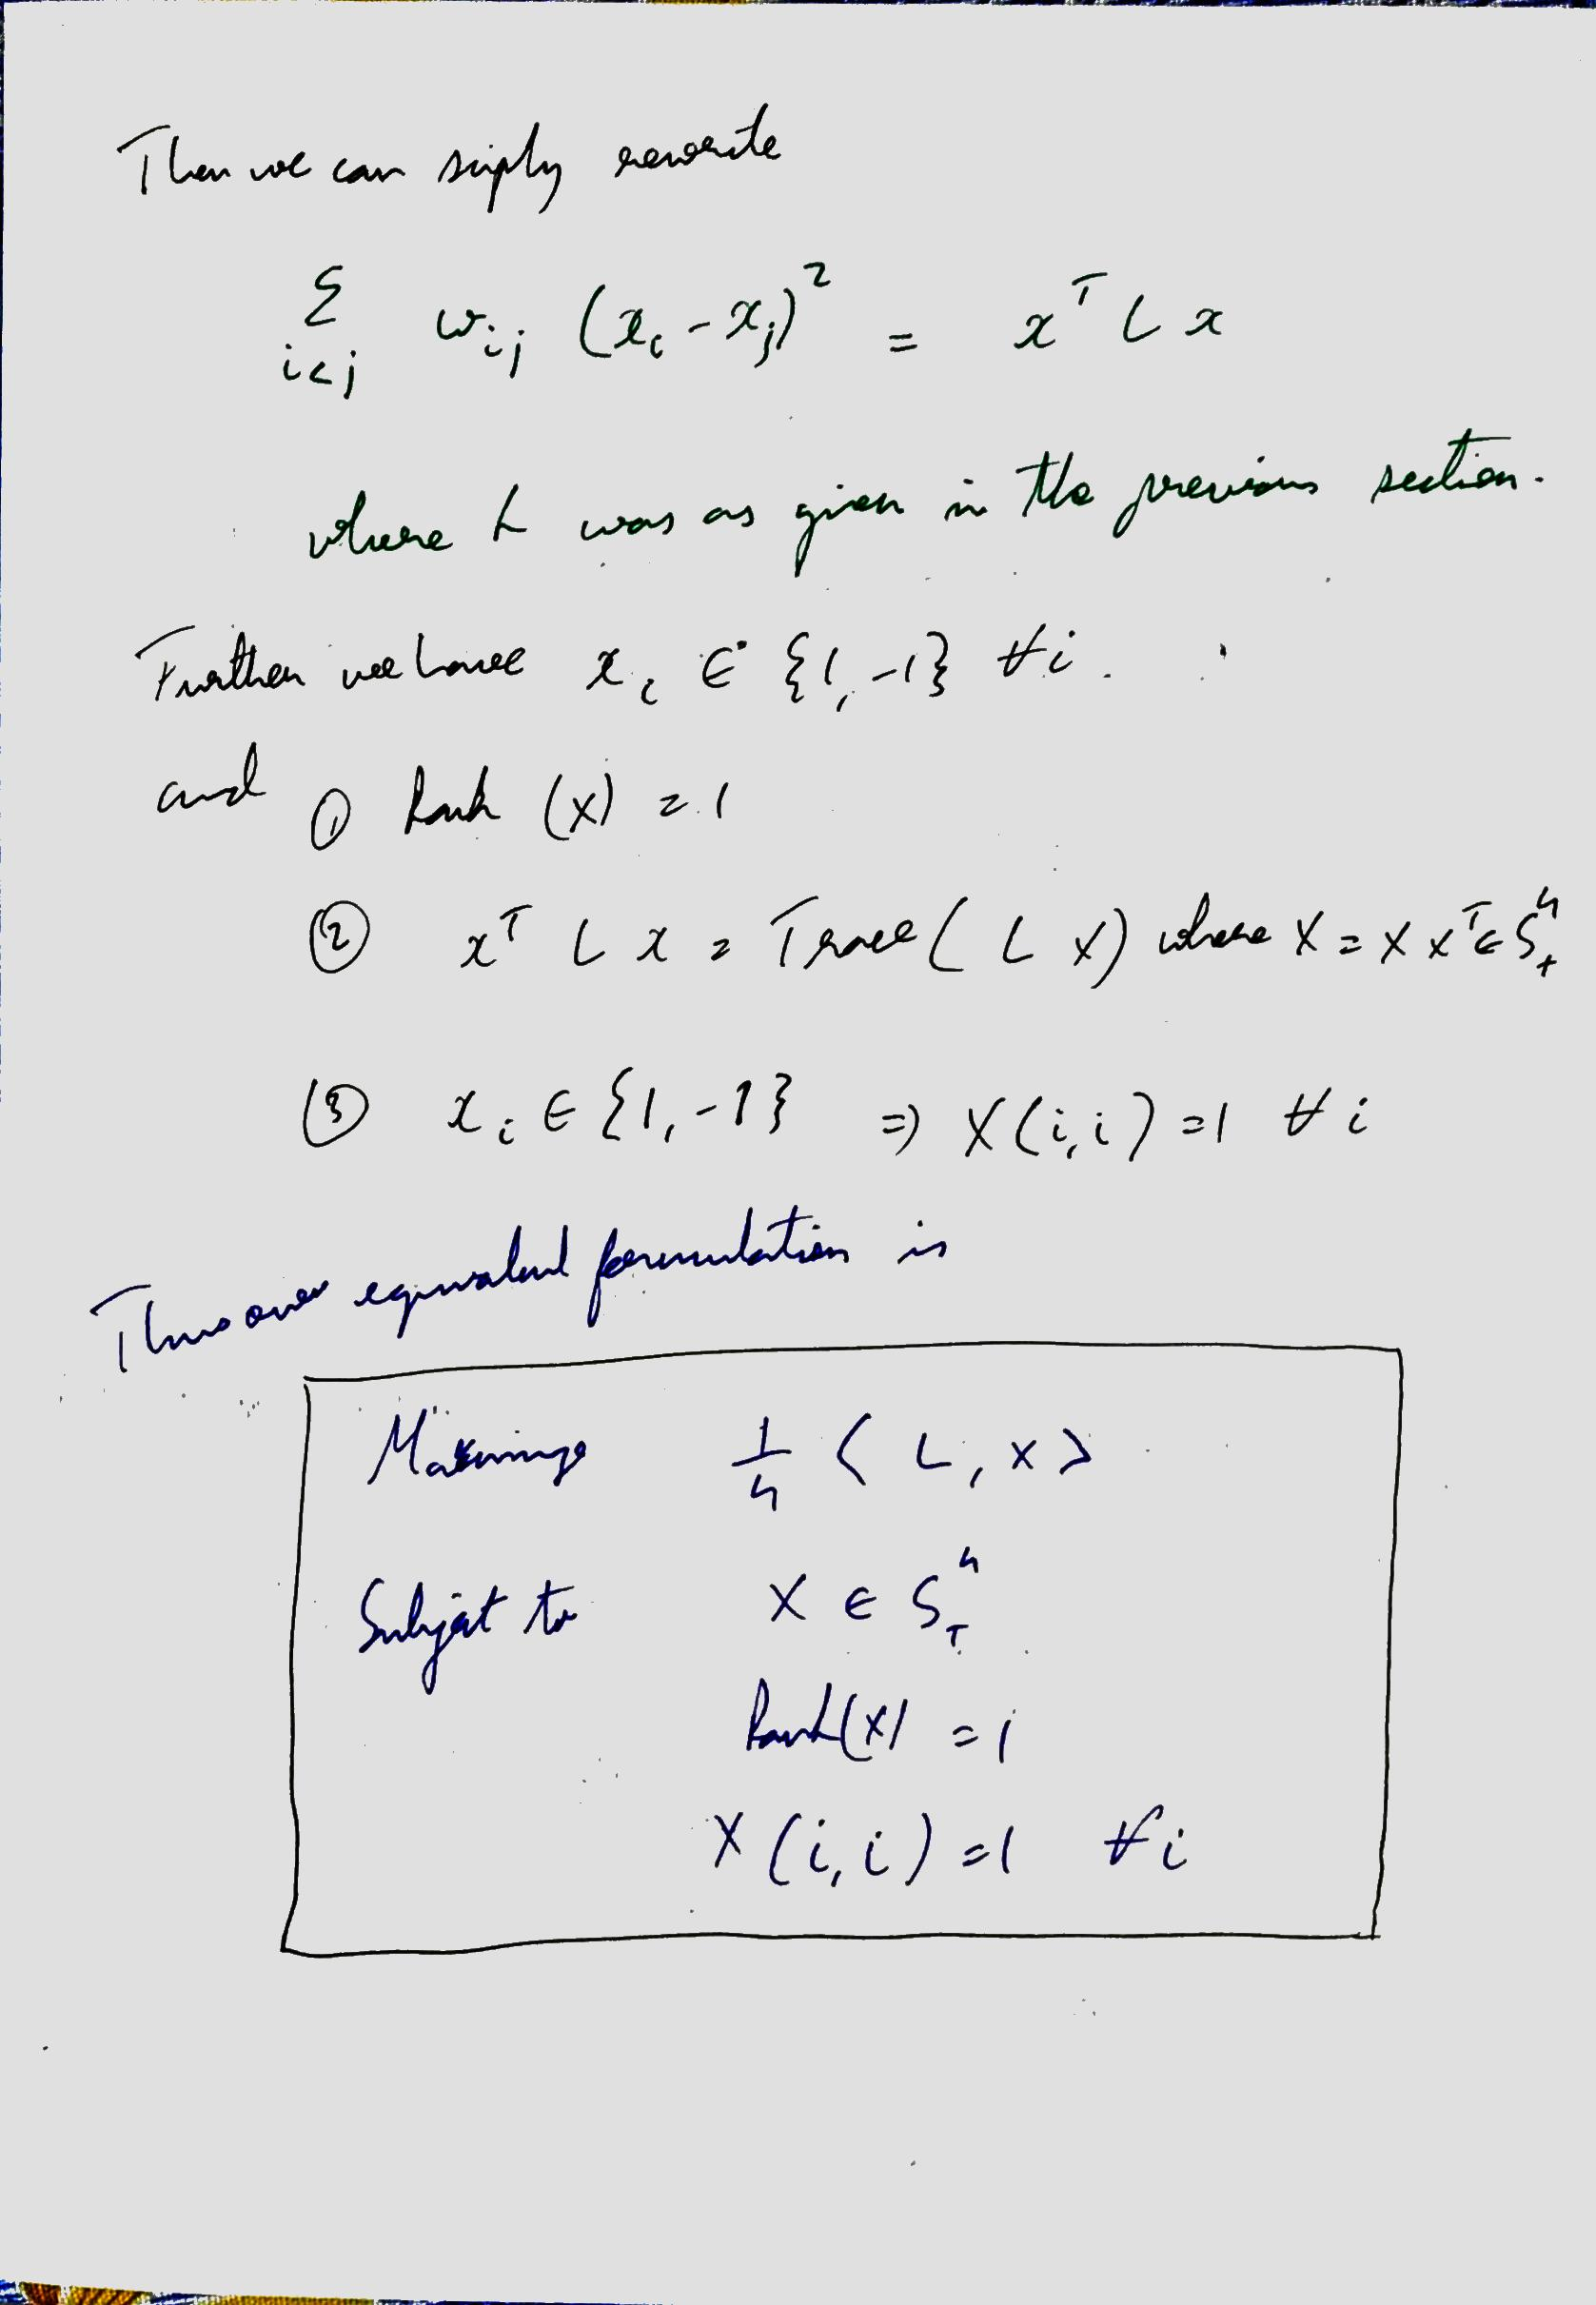 Then we can siply rewrite
Σ_{i<j} w_{ij} (x_i - x_j)^2 = x^T L x
where L was as given in the previous section.
Further we have x_i ∈ {1, -1} ∀i.
and ① Rank (X) = 1
② x^T L x = Trace ( L X) where X = x x^T ∈ S_+^n
③ x_i ∈ {1, -1} ⇒ X(i,i) = 1 ∀ i
Thus our equivalent formulation is
Maximize 1/4 < L, X >
Subject to X ∈ S_+^n
Rank(X) = 1
X (i, i) = 1 ∀i